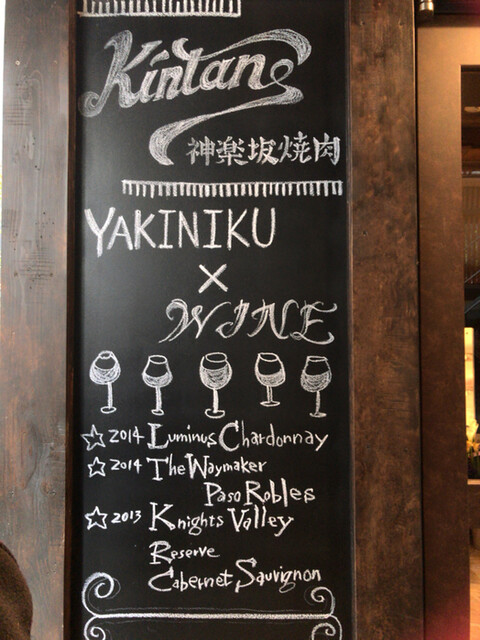 Kintan
神楽坂焼肉
YAKINIKU
×
WINE
☆ 2014 Luminus Chardonnay
☆ 2014 The Waymaker
Paso Robles
☆ 2013 Knights Valley
Reserve
Cabernet Sauvignon